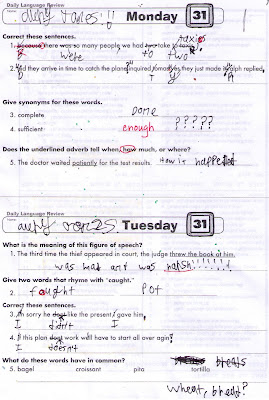 Daily Language Review
Monday 31
Correct these sentences.
1. because there was so many people we had two take to taxis
were to two
2. did they arrive in time to catch the plane inquired tomas yes they just made it ralph replied
Give synonyms for these words.
3. complete done
4. sufficient enough ?????
Does the underlined adverb tell when, how much, or where?
5. The doctor waited patiently for the test results. How is
Daily Language Review
Tuesday 31
What is the meaning of this figure of speech?
1. The third time the thief appeared in court, the judge threw the book at him.
was mad and was harsh!!!!!!!
Give two words that rhyme with "caught."
2. fought pot
Correct these sentences.
3. I'm sorry he dont like the present I gave him
I didn't I
4. if this plan dont work we'll have to start all over agin
I doesn't
What do these words have in common?
5. bagel croissant pita tortilla breads
wheat, breads?